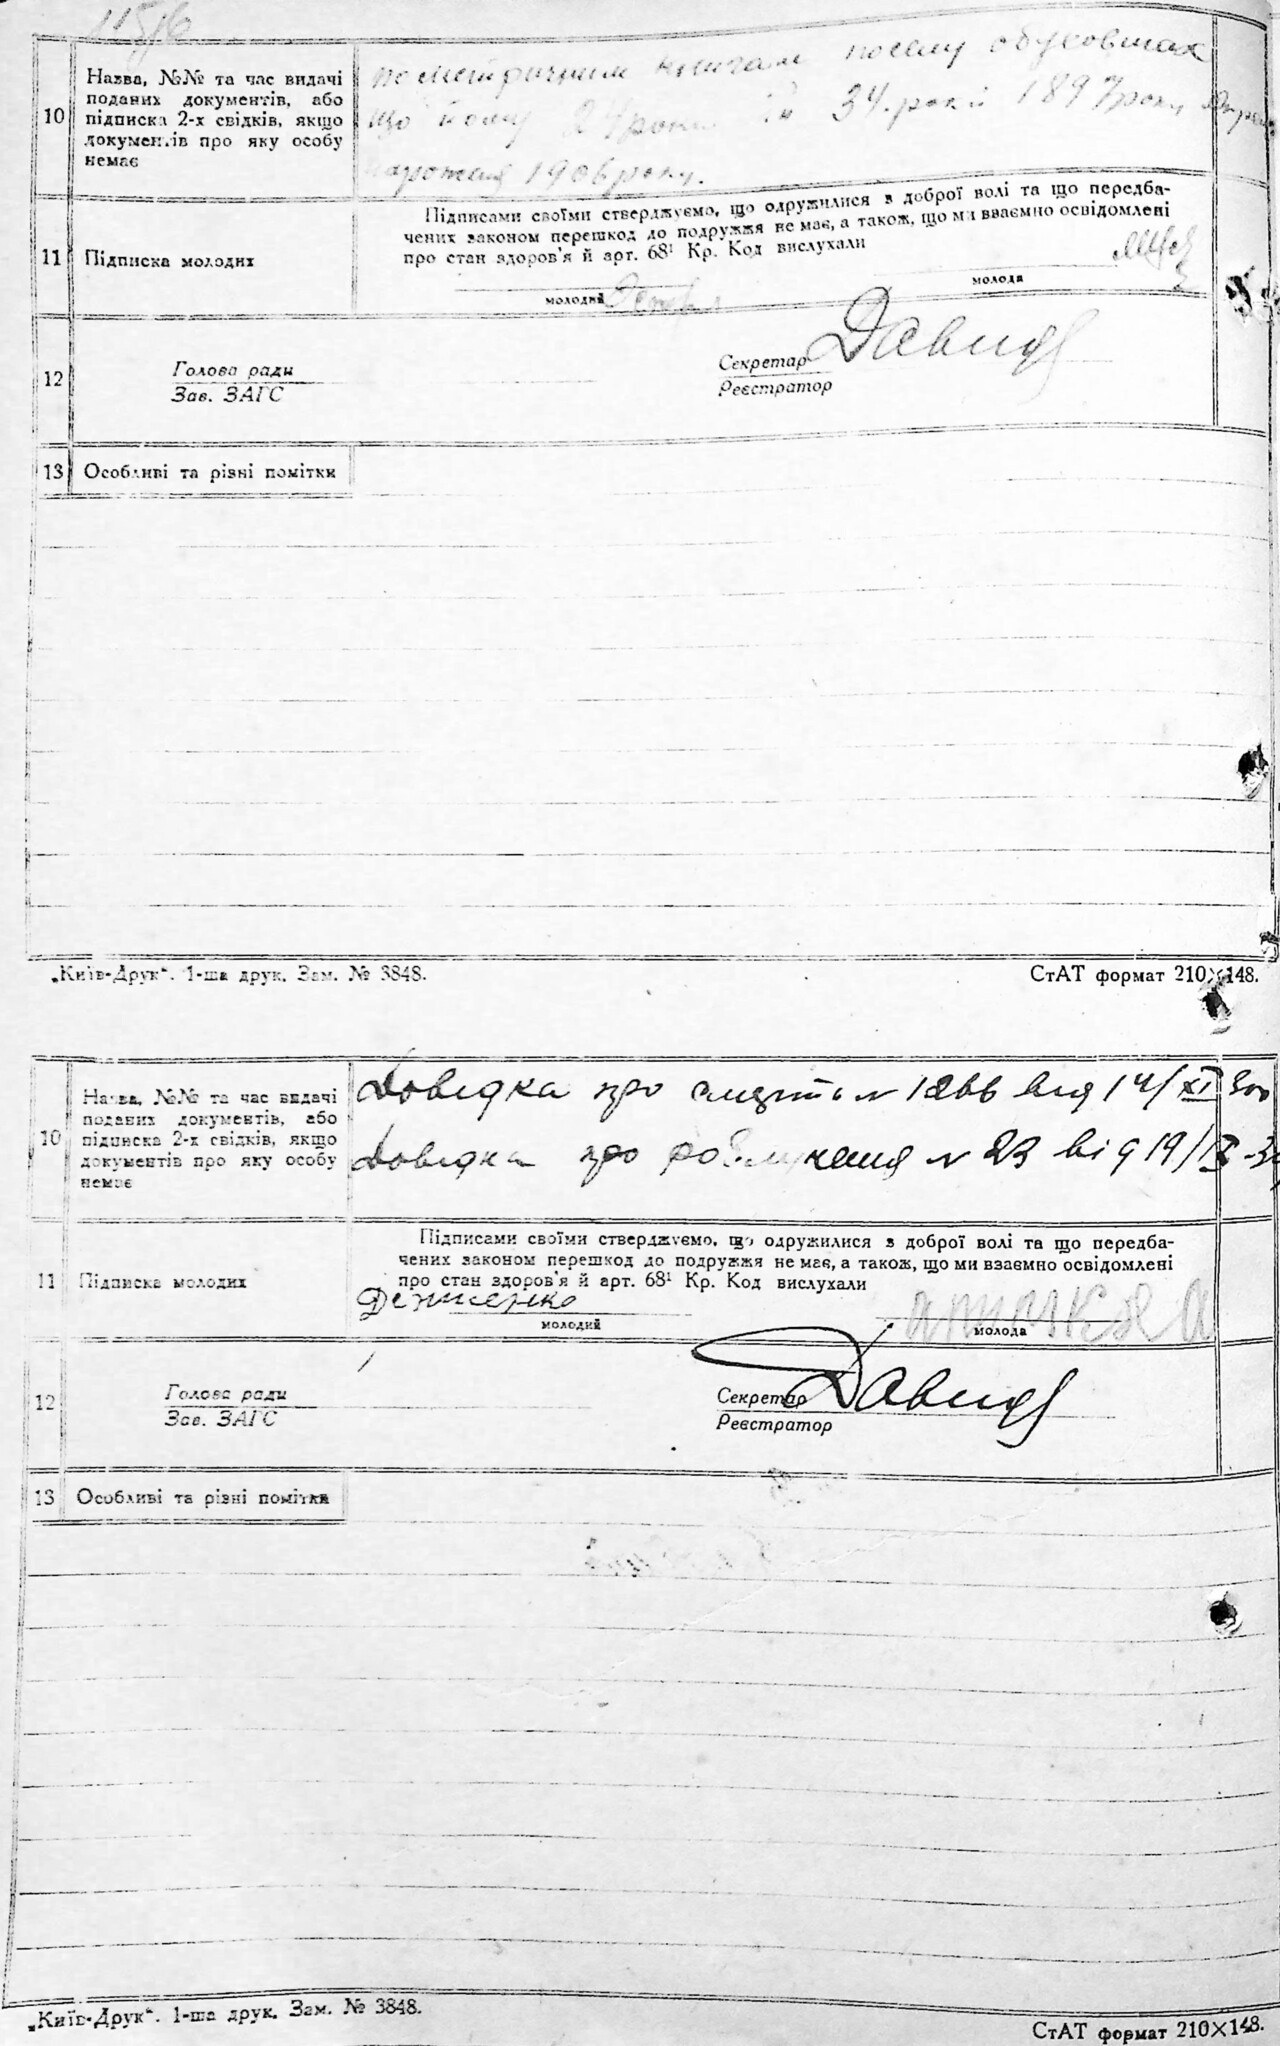 10 Назва, №№ та час видачі
поданих документів, або
підписка 2-х свідків, якщо
документів про яку особу
немає
що йому 24 роки 34. роки 1897 року
1906 року.
11 Підписка молодих
Підписами своїми стверджуємо, що одружилися з доброї волі та що передба-
чених законом перешкод до подружжя не має, а також, що ми взаємно освідомлені
про стан здоров'я й арт. 68¹ Кр. Код вислухали
молодий
молода
12 Голова ради
Зав. ЗАГС
Секретар
Реєстратор
13 Особливі та різні помітки
„Київ-Друк“. 1-ша друк. Зам. № 3848.
СтАТ формат 210×148.
10 Назва, №№ та час видачі
поданих документів, або
підписка 2-х свідків, якщо
документів про яку особу
немає
Довідка про смерть N 1266 від 14/XI
Довідка про розлучення N 23 від 19/IX
11 Підписка молодих
Підписами своїми стверджуємо, що одружилися з доброї волі та що передба-
чених законом перешкод до подружжя не має, а також, що ми взаємно освідомлені
про стан здоров'я й арт. 68¹ Кр. Код вислухали
молодий
молода
12 Голова ради
Зав. ЗАГС
Секретар
Реєстратор
13 Особливі та різні помітки
„Київ-Друк“. 1-ша друк. Зам. № 3848.
СтАТ формат 210×148.